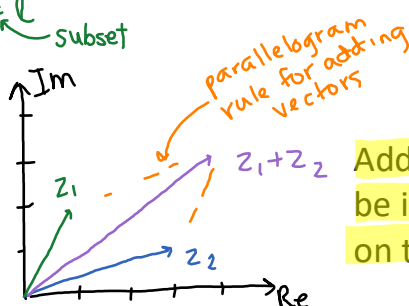 subset
Im
parallelogram
rule for adding
vectors
Z₁
Z₁+Z₂
Z₂
Re
Add
be i
on t